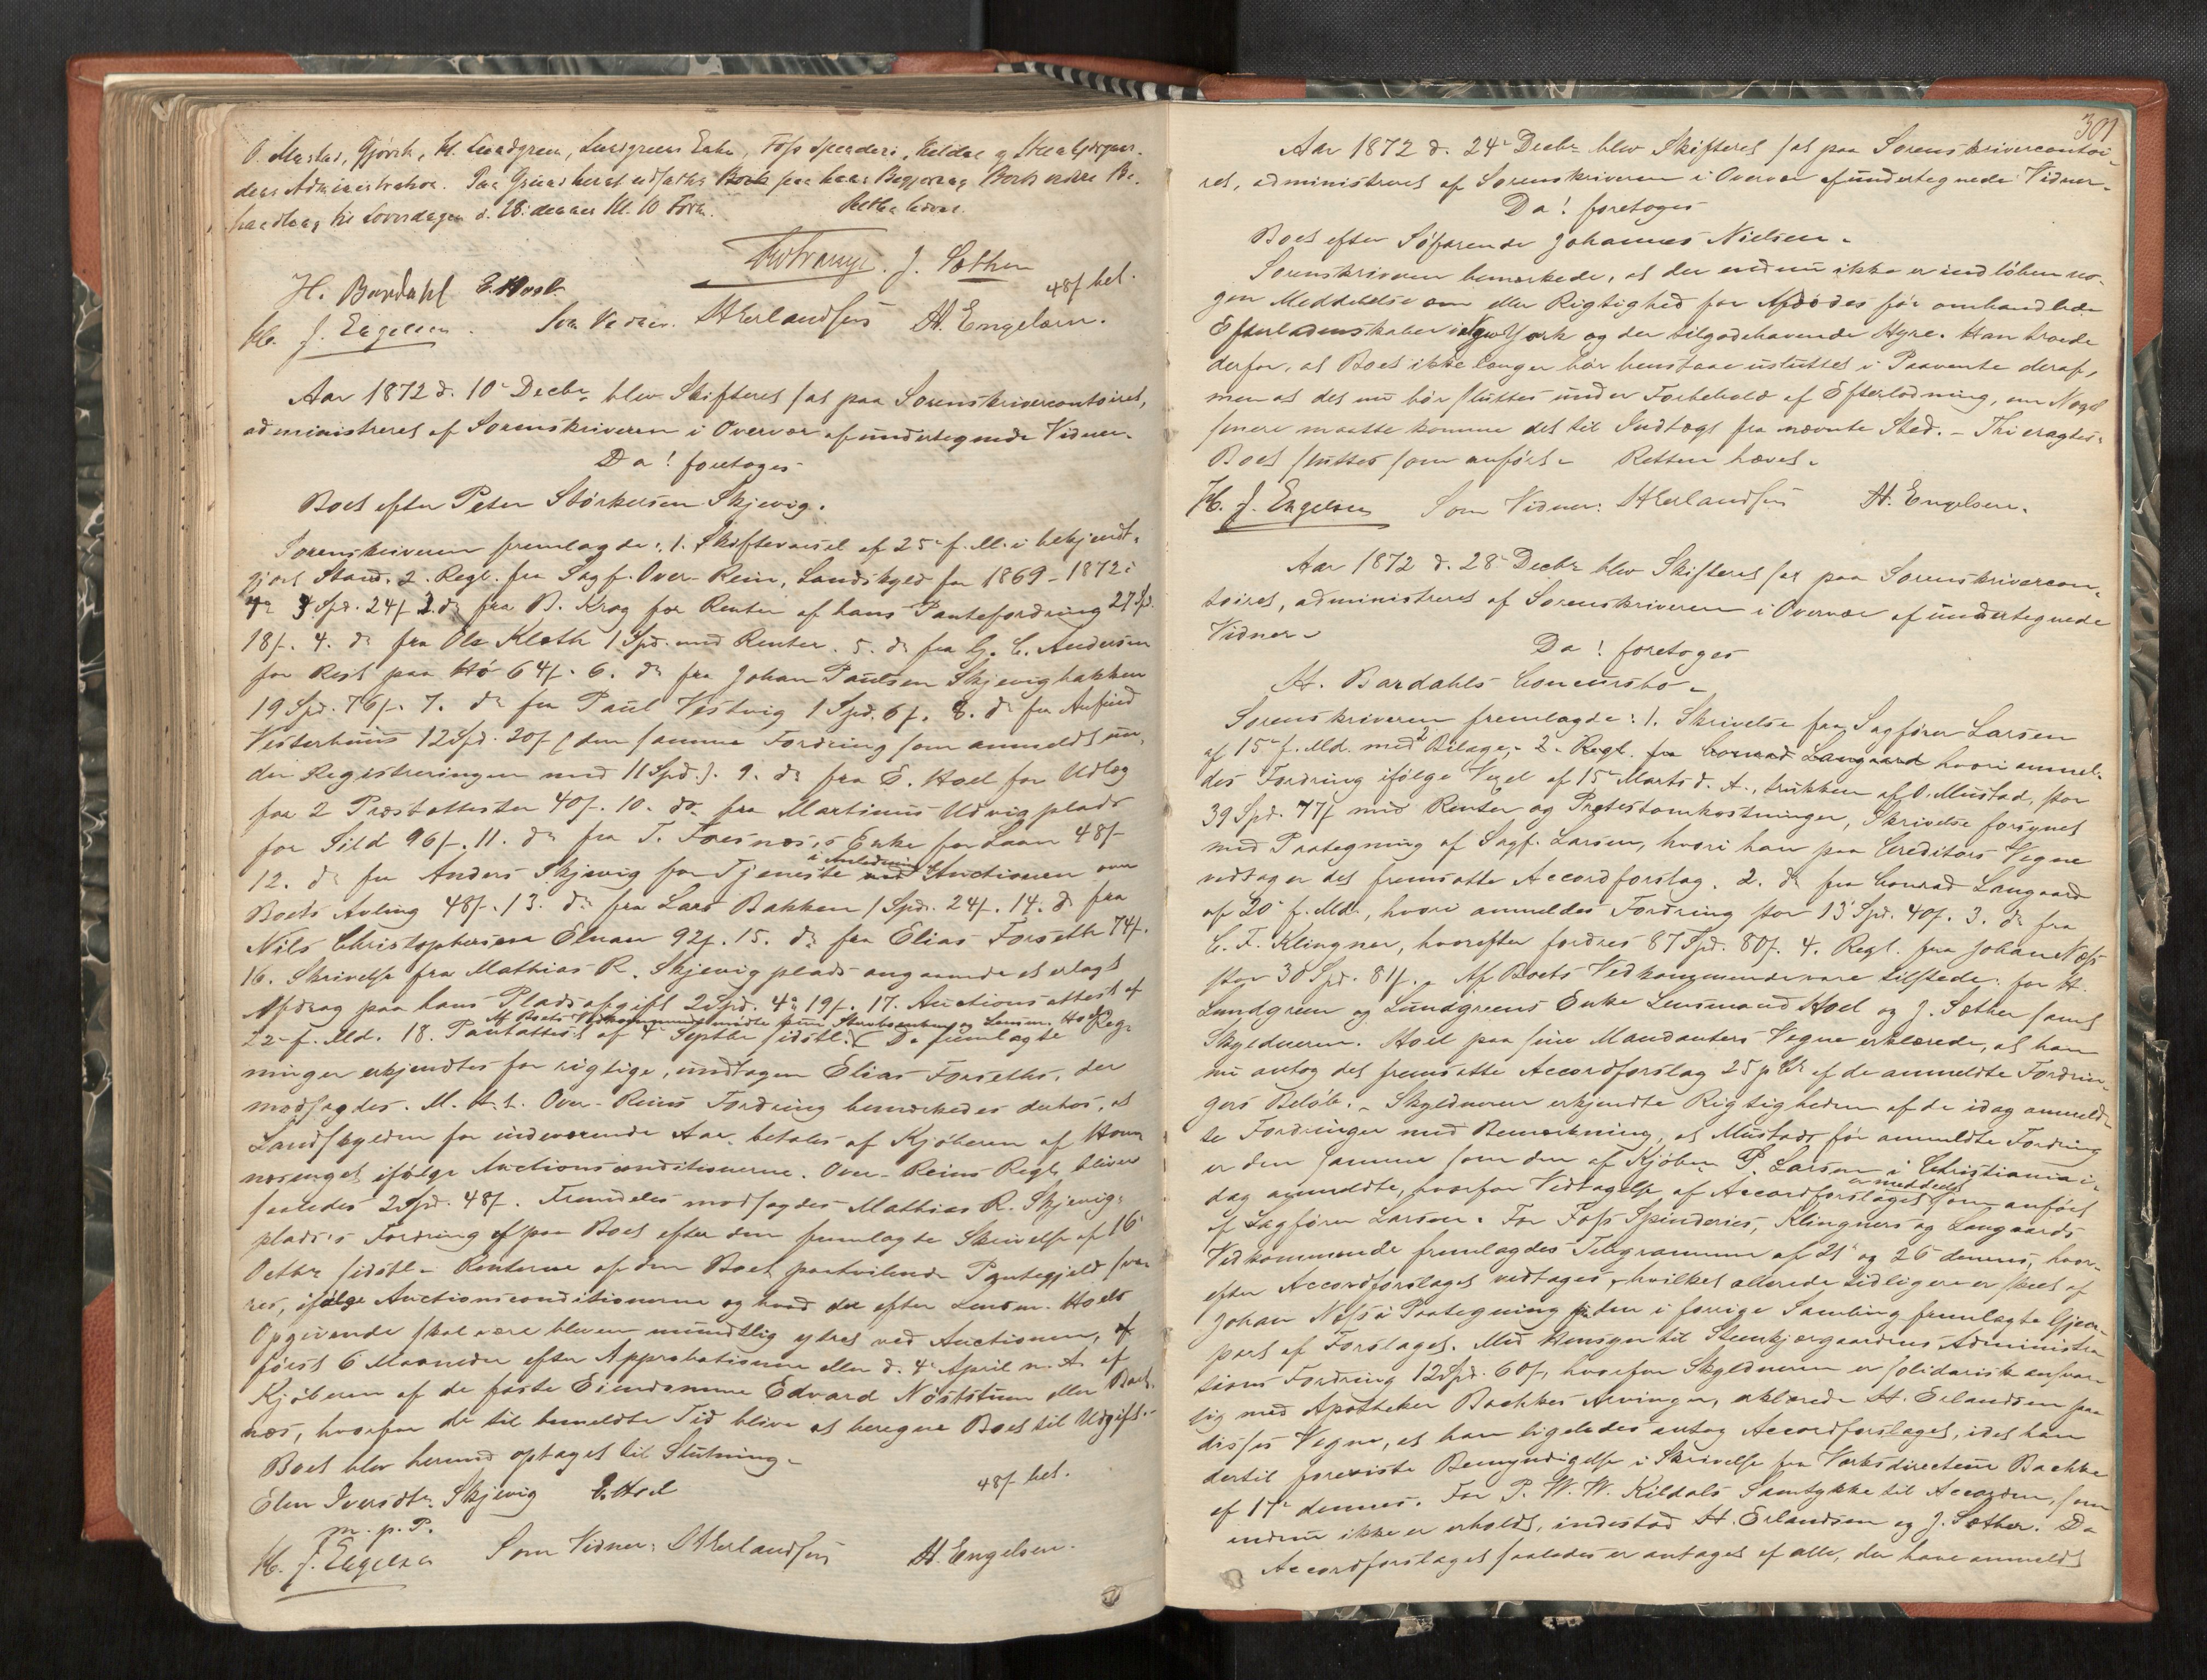 O. Mustad, Gjøvik, H. Lundgreen, Lundgreens Enke, Foss Spinderi, Kildal og Stenkjærgaar-
dens Administration. Paa Grund heraf udsattes paa hans Begjæring Boets videre Be-
handling til Løverdagen d. 28. dennes Kl. 10 Form. Retten hævet.
J. Sæther
H. Bardahl E. Hoel 48 s. bet.
H. J. Engelsen. Som Vidner. StErlandsen H. Engelsen.
Aar 1872 d. 10de Decbr. blev Skifteret sat paa Sorenskrivercontoiret,
administreret af Sorenskriveren i Overvær af undertegnede Vidner.
Da! foretoges
Boet efter Peter Størkersen Skjevig.
Sorenskriveren fremlagde: 1. Skiftevarsel af 25de f. M. i bekjendt-
gjort Stand. 2. Regl. fra Sagf. Over-Rein, Landskyld for 1869-1872:
3 Spd. 24 s. 3. do fra B. Krog for Renter af hans Pantefordring 27 Spd.
18 s. 4. do fra Ole Kloth 1 Spd. med Renter. 5. do fra G. C. Andersen
for Rest paa Hø 64 s. 6. do fra Johan Paulsen Skjevigbakken
19 Spd. 76 s. 7. do fra Paul Vestvig 1 Spd. 6 s. 8. do fra Anfind
Vesterhuus 12 Spd. 20 s. (den samme Fordring som anmeldt un-
der Registreringen med 11 Spd.). 9. do fra E. Hoel for Udlæg
for 2 Præsteattester 40 s. 10. do fra Martinus Udvigplads
for Sild 96 s. 11. do fra T. Foresnæs's Enke for Laan 48 s.
12. do fra Anders Skjevig for Tjeneste i Anledning Auctionen over
Boets Avling 48 s. 13. do fra Lars Bakken 1 Spd. 24 s. 14. do fra
Nils Christophersen Elnan 92 s. 15. do fra Elias Forseth 74 s.
16. Skrivelse fra Mathias R. Skjevigplads angaaende et erlagt
Afdrag paa hans Pladsafgift 2 Spd. 4 19 s. 17. Auctionsattest af
22de f. Md. 18. Pantattest af 4de Septbr. sidstl. Af Boets Vedkommende mødte Enken og Lensm. Hoel. De fremlagte Reg-
ninger erkjendtes for rigtige, undtagen Elias Forseths, der
modsagdes. M. H. t. Over-Reins Fordring bemærkedes derhos, at
Landskylden for indeværende Aar betales af Kjøberen af
ifølge Auctionsconditionerne. Over-Reins Regl. bliver
saaledes 2 Spd. 48 s. Fremdeles modsagdes Mathias R. Skjevig-
plads's Fordring paa Boet efter den fremlagte Skrivelse af 16de
Octbr. sidstl. Renterne af den Boet paahvilende Pantegjeld sva-
res, ifølge Auctionsconditionerne og hvad der efter Lensm. Hoels
Opgivende skal være bleven mundtlig ytret ved Auctionen,
først 6 Maaneder efter Approbationen eller d. 4de April n. A. af
Kjøberen af de faste Eiendomme Edvard
hvorfor de til bemeldte Tid blive at beregne Boet til Udgift.
Boet blev hermed optaget til Slutning.
Elen Iversdtr. Skjevig E. Hoel 48 s. bet.
m. p. P.
H. J. Engelsen Som Vidner: StErlandsen H. Engelsen.
301
Aar 1872 d. 24de Decbr. blev Skifteret sat paa Sorenskrivercontoi-
ret, administreret af Sorenskriveren i Overvær af undertegnede Vidner.
Da! foretoges
Boet efter Søfarende Johannes Nielsen.
Sorenskriveren bemærkede, at der endnu ikke er indløben no-
gen Meddelelse om eller Rigtighed for Afdødes før omhandlede
Efterladenskaber i New York og der tilgodehavende Hyre. Han troede
derfor, at Boet ikke længer bør henstaae usluttet i Paavente deraf,
men at det nu bør sluttes under Forbehold af Efterlodning, om Noget
senere maatte komme det til Indtægt fra nævnte Sted. - Thi eragtes:
Boet sluttes som anført. Retten hævet.
H. J. Engelsen Som Vidner: StErlandsen H. Engelsen.
Aar 1872 d. 28de Decbr. blev Skifteret sat paa Sorenskrivercon-
toiret, administreret af Sorenskriveren i Overvær af undertegnede
Vidner.
Da! foretoges
H. Bardahls Concursbo.
Sorenskriveren fremlagde: 1. Skrivelse fra Sagfører Larsen
af 15de f. Md. med 2 Bilage, 2. Regl. fra Conrad Langaard hvori anmel-
des Fordring ifølge Vexel af 15de Marts d. A., trukken af O. Mustad, stor
39 Spd. 77 s. med Renter og Protestomkostninger, Skrivelse forsynet
med Paategning af Sagf. Larsen, hvori han paa Creditors Vegne
vedtager det fremsatte Accordforslag. 2. do fra Conrad Langaard
af 20de f. Md., hvori anmeldes Fordring stor 13 Spd. 40 s. 3. do fra
C. F. Klingner, hvorefter fordres 87 Spd. 80 s. 4. Regl. fra Johan Næss
stor 30 Spd. 81 s. Af Boets Vedkommende vare tilstede: for H.
Lundgreen og Lundgreens Enke Lensmand Hoel og J. Sæther samt
Skyldneren. Hoel paa sine Mandanters Vegne erklærede, at han
nu antog det fremsatte Accordforslag 25 pCt. af de anmeldte Fordrin-
gers Beløb. - Skyldneren erkjendte Rigtigheden af de idag anmeld-
te Fordringer med Bemærkning, at Mustads før anmeldte Fordring
er den samme som den af Kjøbm. P. Larsen i Christiania i-
dag anmeldte, hvorfor Vedtagelse af Accordforslaget er meddelt som anført
af Sagfører Larsen. For Foss Spinderies, Klingners og Langaards
Vedkommende fremlagdes Telegrammer af 21de og 26de dennes, hvor-
efter Accordforslaget vedtages, hvilket allerede tidligere er skeet af
Johan Næss i Paategning paa den i forrige Samling fremlagte Gjen-
part af Forslaget. Med Hensyn til Stenkjærgaardens Administra-
tions Fordring 12 Spd. 60 s., hvorfor Skyldneren er solidarisk ansvar-
lig med Apotheker Bachkes Arvinger, erklærede H. Erlandsen paa
disses Vegne, at han ligeledes antog Accordforslaget, idet han
dertil foreviste Bemyndigelse i Skrivelse fra Værksdirecteur Bachke
af 17de dennes. For P. W. W. Kildals Samtykke til Accorden, som
endnu ikke er erholdt, indestod H. Erlandsen og J. Sæther. Da
Accordforslaget saaledes er antaget af alle, der have anmeldt